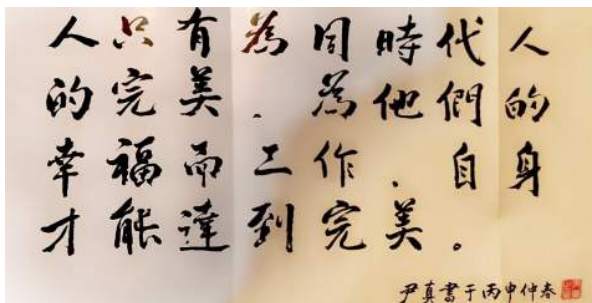 人只有為同時代人
的完美.為他們的
幸福而工作.自身
才能達到完美。
尹真書于丙申仲春